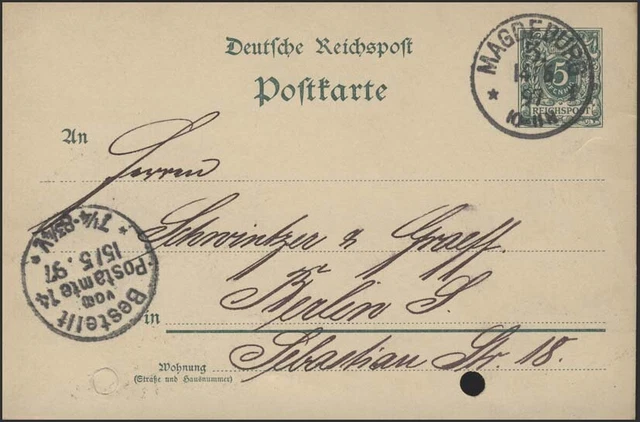 Deutsche Reichspost
Postkarte
MAGDEBURG
14 5
97
10-11 N.
5
PFENNIG
REICHSPOST
An
Herrn
Schwintzer & Graeff.
Berlin S.
in
Sebastian Str. 18.
Wohnung
(Straße und Hausnummer)
Bestellt
vom
Postamte 14
15/5.97
7¼-8¾V.